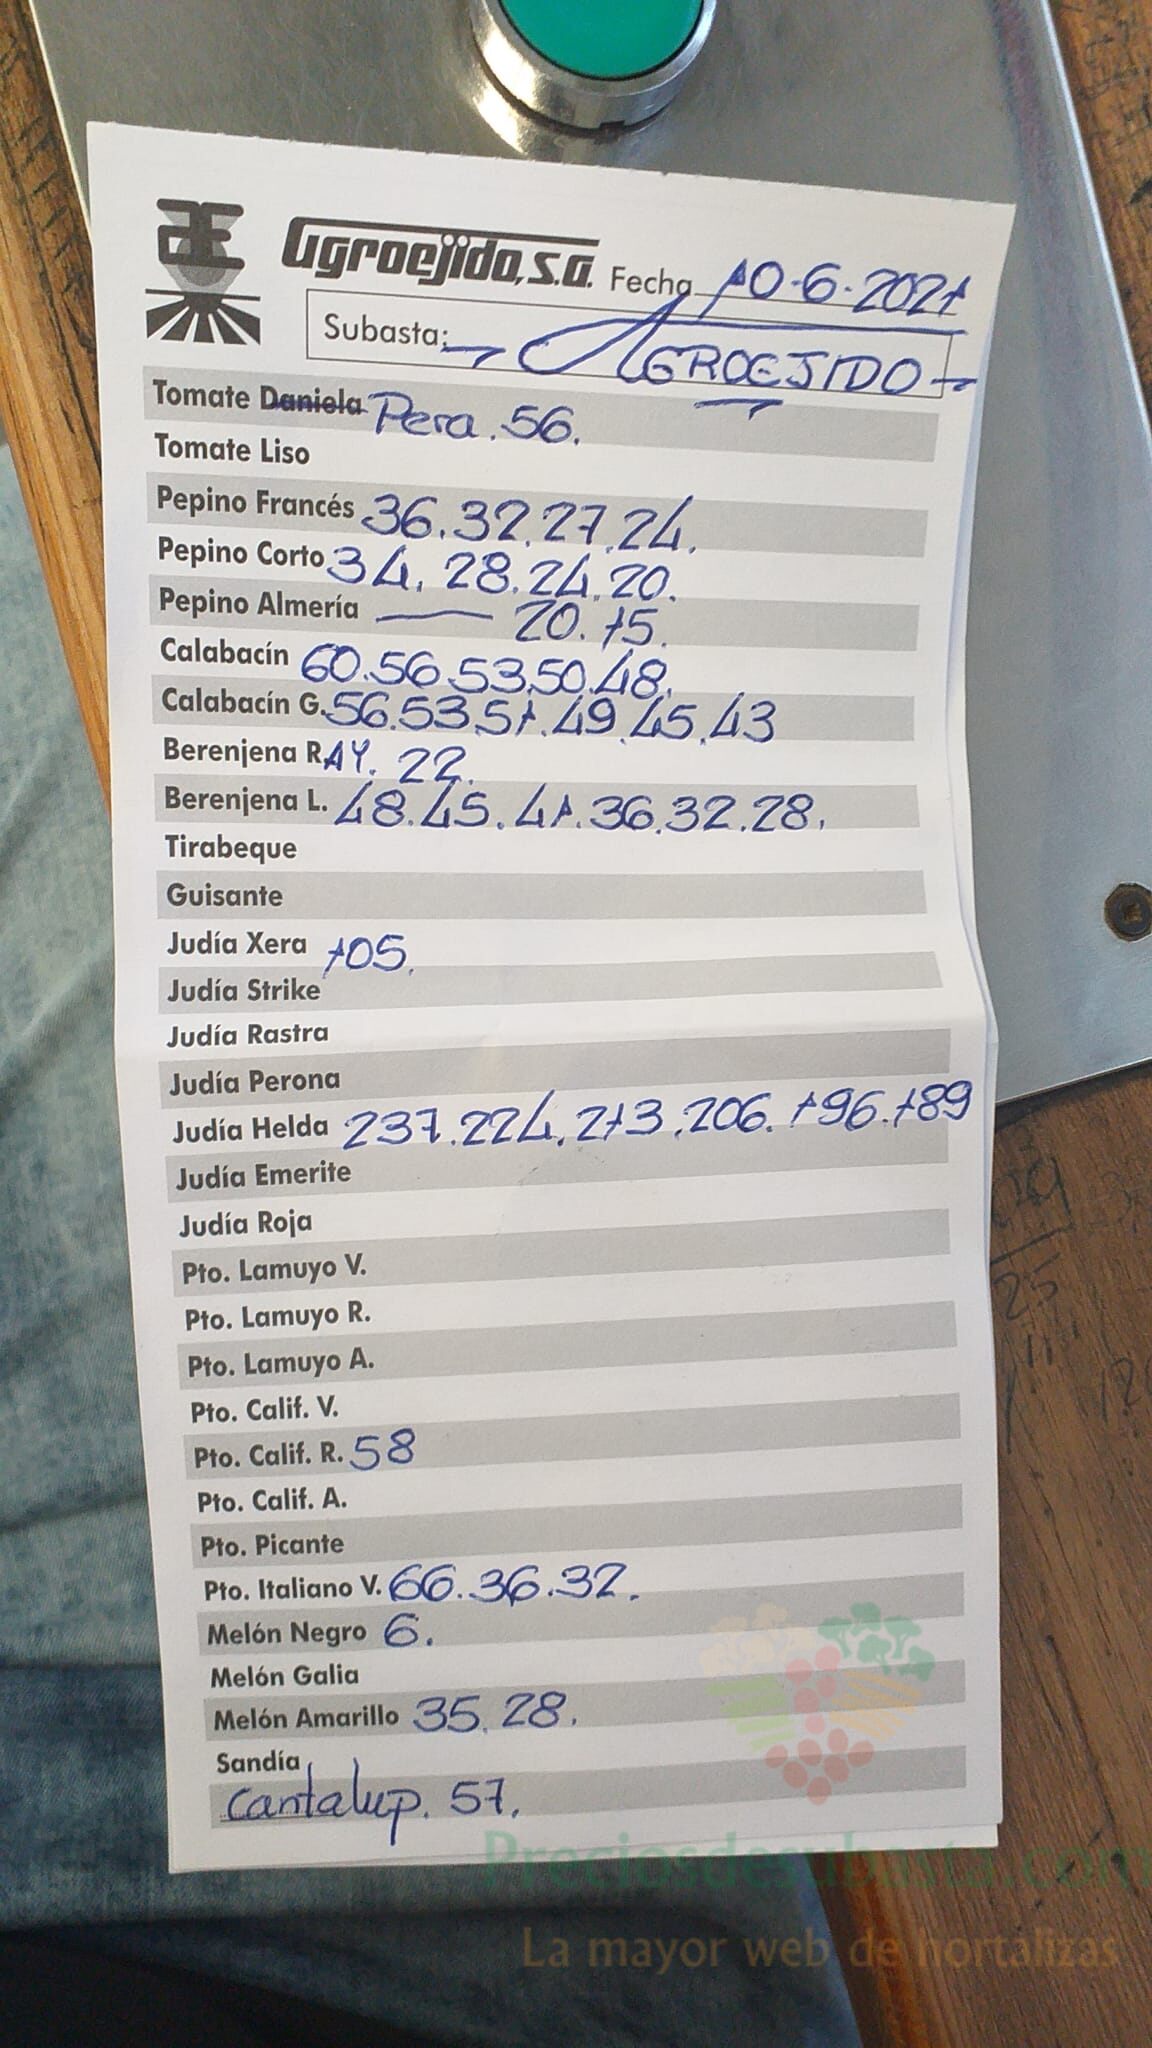 Agroejido, S.A. Fecha 10-6-2021
Subasta: AGROEJIDO
Tomate Daniela Pera. 56.
Tomate Liso
Pepino Francés 36.32.27.24.
Pepino Corto 34.28.24.20.
Pepino Almería — 20.15.
Calabacín 60.56.53.50.48.
Calabacín G. 56.53.51.49.45.43
Berenjena RAY. 22.
Berenjena L. 48.45.41.36.32.28.
Tirabeque
Guisante
Judía Xera 105.
Judía Strike
Judía Rastra
Judía Perona
Judía Helda 237.224.213.206.196.189
Judía Emerite
Judía Roja
Pto. Lamuyo V.
Pto. Lamuyo R.
Pto. Lamuyo A.
Pto. Calif. V.
Pto. Calif. R. 58
Pto. Calif. A.
Pto. Picante
Pto. Italiano V. 66.36.32.
Melón Negro 6.
Melón Galia
Melón Amarillo 35.28.
Sandía
Cantalup. 57.
Preciosdesubasta.com
La mayor web de hortalizas